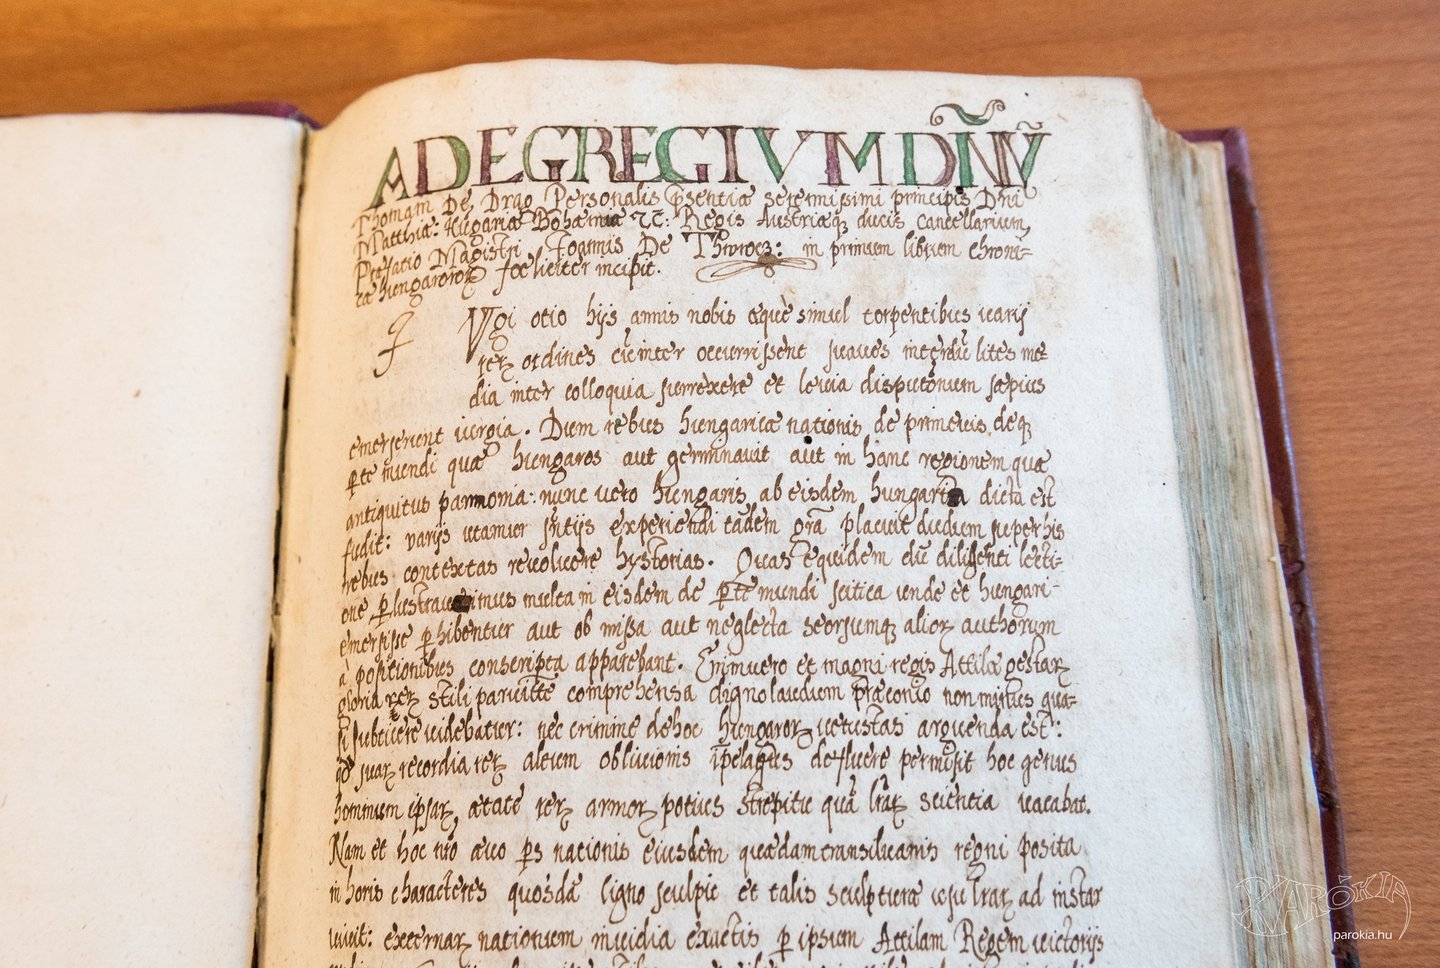 AD EGREGIVM DÑṼ
Thomam De Drao Personalis psentiæ serenissimi principis Dñi
Matthiæ: Hugariæ Bohæmiæ &c: Regis Austriæq; ducis cancellarium,
Præfatio Magistri Joannis De Thwrocz: in primum librum chroni-
cæ hungarorꝝ fœliciter incipit.
Vgi otio hijs annis nobis æquè simul torpentibus varij
rerꝝ ordines cũ inter occurrissent suaves interdũ lites me-
dia inter colloquia surrexere et levia disputõnum sæpius
emerserunt iurgia. Dum rebus hungaricæ nationis de primevis deq̃
ꝑte mundi quæ hungaros aut germinavit aut in hanc regionem quæ
antiquitus pannonia: nunc vero hungaris ab eisdem hungaria dicta est
fudit: varijs utamur sñtijs experiendi tadem grã placuit dudum super his
rebus contextas revoluere hystorias. Quas equidem cũ diligenti lecti-
one ꝑlustravimus multa in eisdem de ꝑte mundi scitica unde et hungari
emersisse ꝑhibentur aut ob missa aut neglecta seorsumq; aliorꝝ authorum
à positionibus conscripta apparebant. Enimvero et magni regis Attilæ gestarꝝ
gloria rerꝝ stili parvitate comprehensa digno laudum præconio non minus qua-
si subticere videbatur: nec crimine de hoc hungarorꝝ vetustas arguenda est:
qd̃ suarꝝ recordia rerꝝ alveum oblivionis in pelagus defluere permisit hoc genus
hominum ipsarꝝ ætate rerꝝ armorꝝ potius strepitu quã lrarꝝ scientia vacabat.
Nam et hoc nr̃o ævo ꝑs nationis eiusdem quædam transilvanis regni posita
in horis characteres quosdã ligno sculpit et talis sculpturæ usu lrarꝝ ad instar
vivit: externarꝝ nationum invidia exactis ꝑ ipsum Attilam Regem victorijs
PARÓKIA
parokia.hu